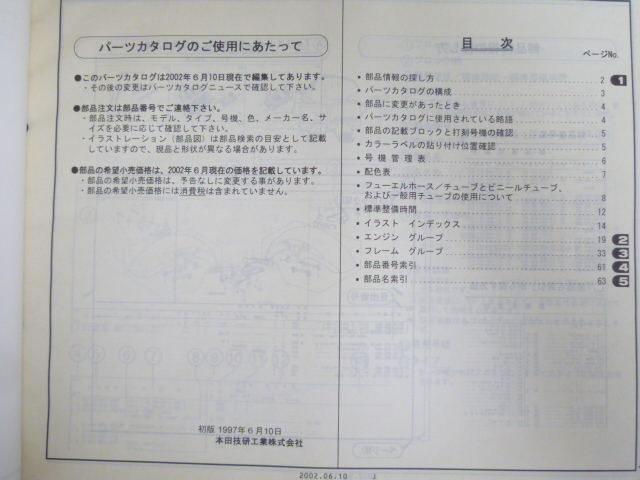 パーツカタログのご使用にあたって
●このパーツカタログは2002年6月10日現在で編集してあります。
・その後の変更はパーツカタログニュースで確認して下さい。
●部品注文は部品番号でご連絡下さい。
・部品注文時は、モデル、タイプ、号機、色、メーカー名、サ
イズを必要に応じて確認して下さい。
・イラストレーション（部品図）は部品検索の目安として記載
していますので、現品と形状が異なる場合があります。
●部品の希望小売価格は、2002年6月現在の価格を記載しています。
・部品の希望小売価格は、予告なしに変更する事があります。
・部品の希望小売価格には消費税は含まれていません。
初版 1997年6月10日
本田技研工業株式会社
目 次
ページNo.
• 部品情報の探し方 2 1
• パーツカタログの構成 3
• 部品に変更があったとき 4
• パーツカタログに使用されている略語 4
• 部品の記載ブロックと打刻号機の確認 5
• カラーラベルの貼り付け位置確認 5
• 号機管理表 6
• 配色表 7
• フューエルホース／チューブとビニールチューブ、
および一般用チューブの使用について 8
• 標準整備時間 12
• イラスト インデックス 14
• エンジン グループ 19 2
• フレーム グループ 33 3
• 部品番号索引 61 4
• 部品名索引 63 5
2002.06.10 J